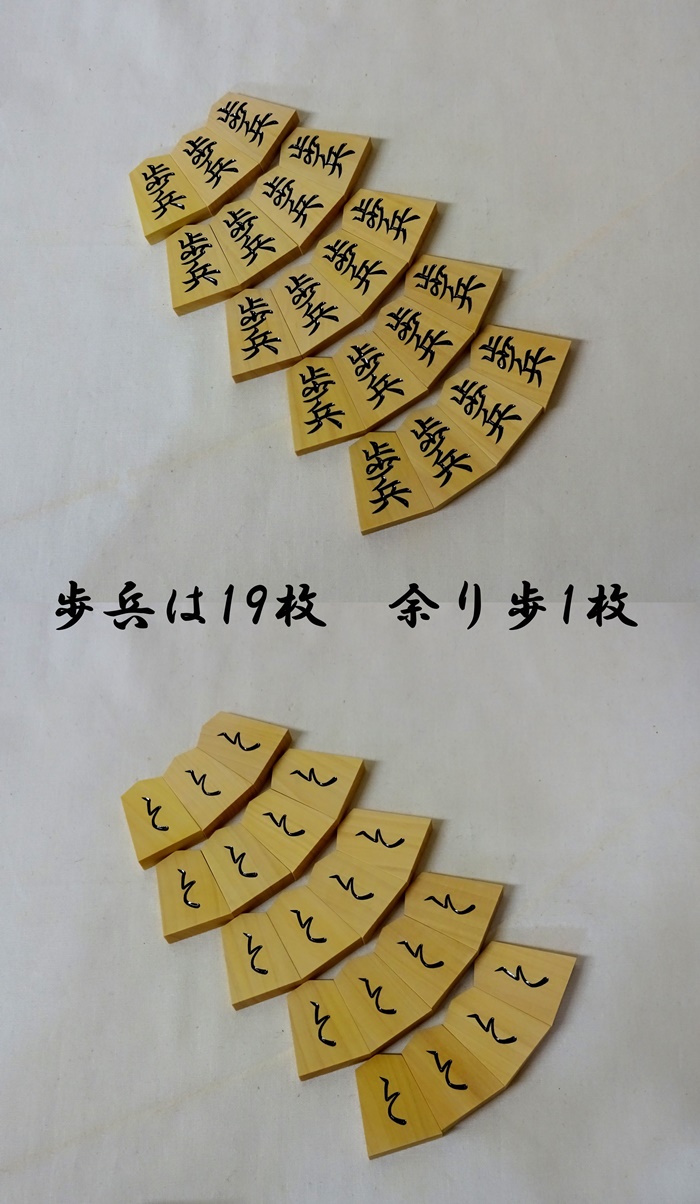 歩兵 歩兵 歩兵
歩兵 歩兵 歩兵 歩兵
歩兵 歩兵 歩兵 歩兵
歩兵 歩兵 歩兵 歩兵
歩兵 歩兵 歩兵 歩兵
歩兵は19枚　余り歩1枚
と と と
と と と と
と と と と
と と と と
と と と と